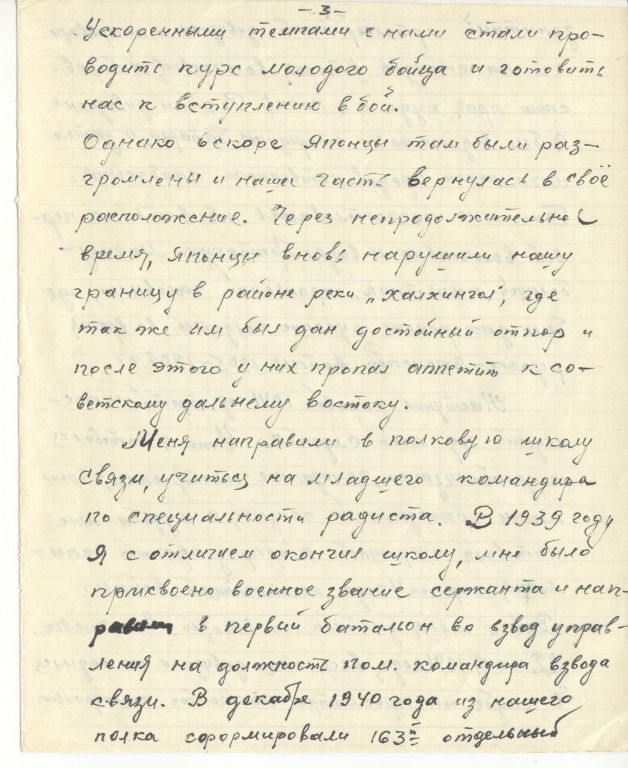 -3-
Ускоренными темпами с нами стали про-
водить курс молодого бойца и готовить
нас к вступлению в бой.
Однако вскоре Японцы там были раз-
громлены и наша часть вернулась в своё
расположение. Через непродолжительное
время, японцы вновь нарушили нашу
границу в районе реки „Халхингол", где
так же им был дан достойный отпор и
после этого у них пропал аппетит к со-
ветскому дальнему востоку.
Меня направили в полковую школу
связи, учиться на младшего командира
по специальности радиста. В 1939 году
я с отличием окончил школу, мне было
присвоено военное звание сержанта и нап-
равили в первый батальон во взвод управ-
ления на должность пом. командира взвода
связи. В декабре 1940 года из нашего
полка сформировали 163й отдельный